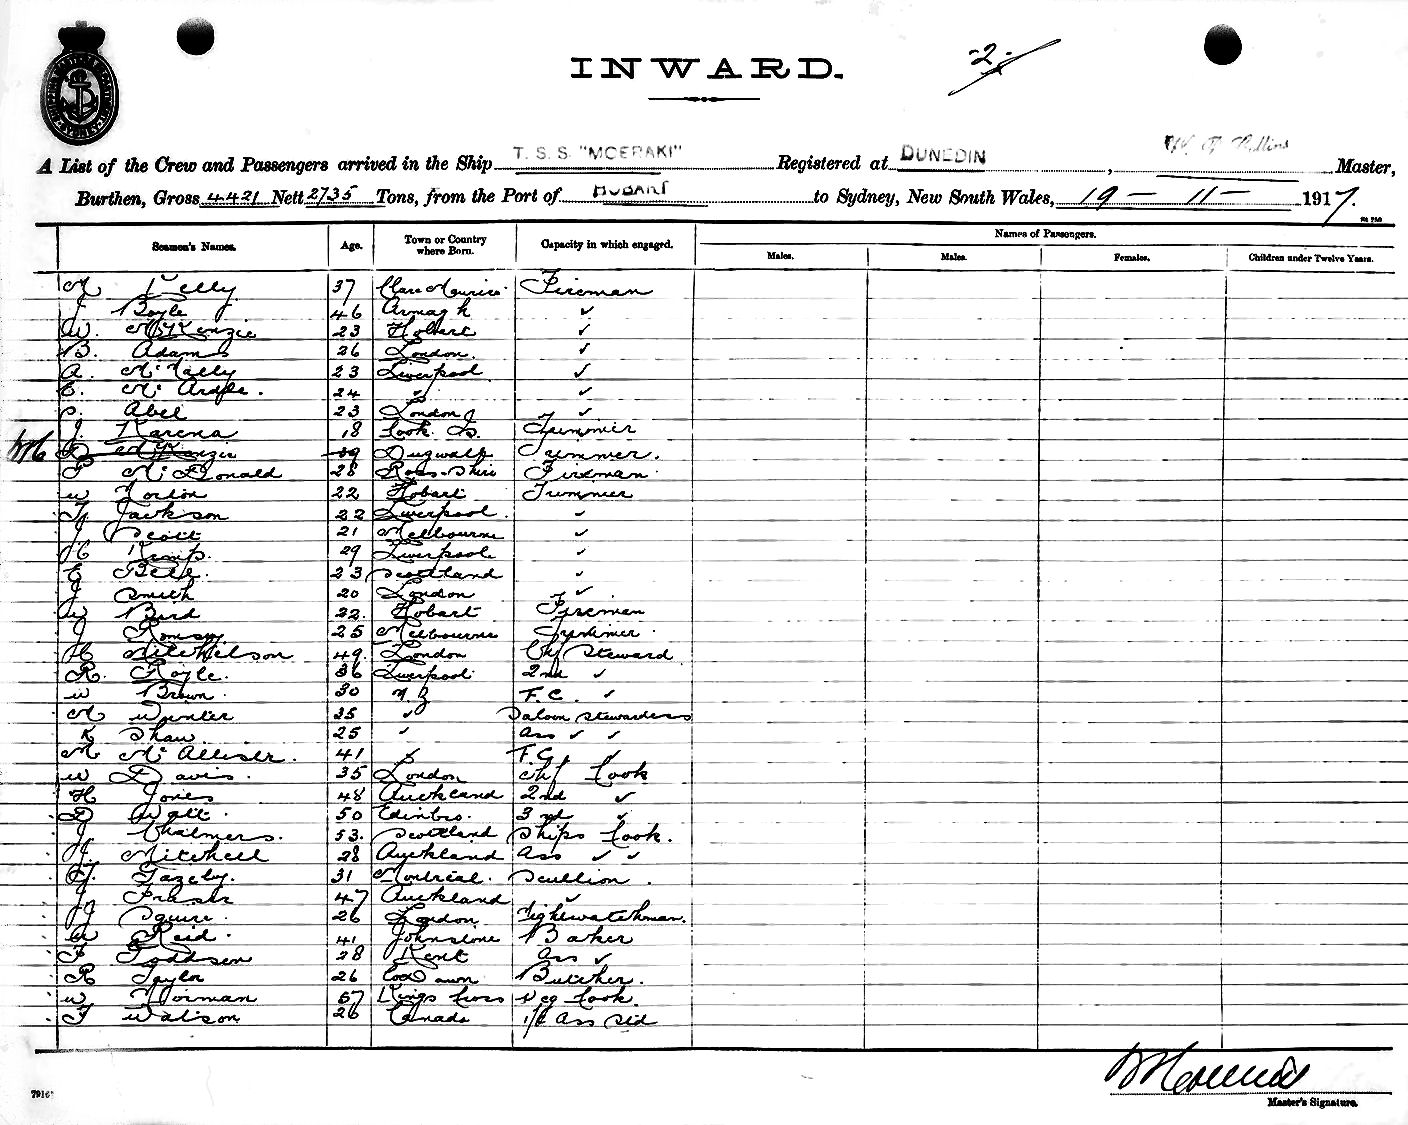 INWARD.
-2-
A List of the Crew and Passengers arrived in the Ship T. S. S. "MOERAKI" Registered at DUNEDIN, Master,
Burthen, Gross 4421 Nett 2735 Tons, from the Port of HOBART to Sydney, New South Wales, 19 - 11 - 1917.
Names of Passengers.
Seamen's Names. Age. Town or Country where Born. Capacity in which engaged. Males. Males. Females. Children under Twelve Years.
M Kelly 37 Fireman
J Boyle 46 Armagh ✓
W. McKenzie 23 Hobart ✓
B. Adams 26 London. ✓
A. McNally 23 Liverpool ✓
E. McArdle. 24 ✓ ✓
C. Abel 23 London ✓
J. Karena 18 Cook Is. Trimmer
D McKenzie 39 Dingwall Trimmer.
P McDonald 28 Ross-shire Fireman
W Norton 22 Hobart Trimmer
T Jackson 22 Liverpool. ✓
J Scott 21 Melbourne ✓
H Kemp. 29 Liverpool ✓
E Bell. 23 Scotland ✓
J Smith 20 London ✓
W Bird 22. Hobart Fireman
J Romsey 25 Melbourne Trimmer.
H Mitchelson 49. London Chf Steward
R. Royle. 36 Liverpool 2nd ✓
W Brown. 30 N.Z F.C. ✓
M Winter 35 ✓ Saloon Stewardess
K Shaw 25 ✓ Ass ✓ ✓
M McAllister. 41 ✓ F.C. ✓
W Davis. 35 London Chf Cook
H Jones 48 Auckland 2nd ✓
D Watt. 50 Edinbro. 3rd ✓
J. Chalmers. 53. Scotland Ships Cook.
J. Mitchell 28 Auckland Ass ✓ ✓
T. Gazely. 31 Montreal. Scullion.
J. Fraser 47 Auckland ✓
J Squire. 26 London Nightwatchman.
W Reid. 41 Johnstone Baker
F Doddsen 28 Kent Ass ✓
R Taylor 26 Butcher.
W Norman 57 Kings Cross Veg Cook.
F Watson 26 Canada Ass Std
Master's Signature.